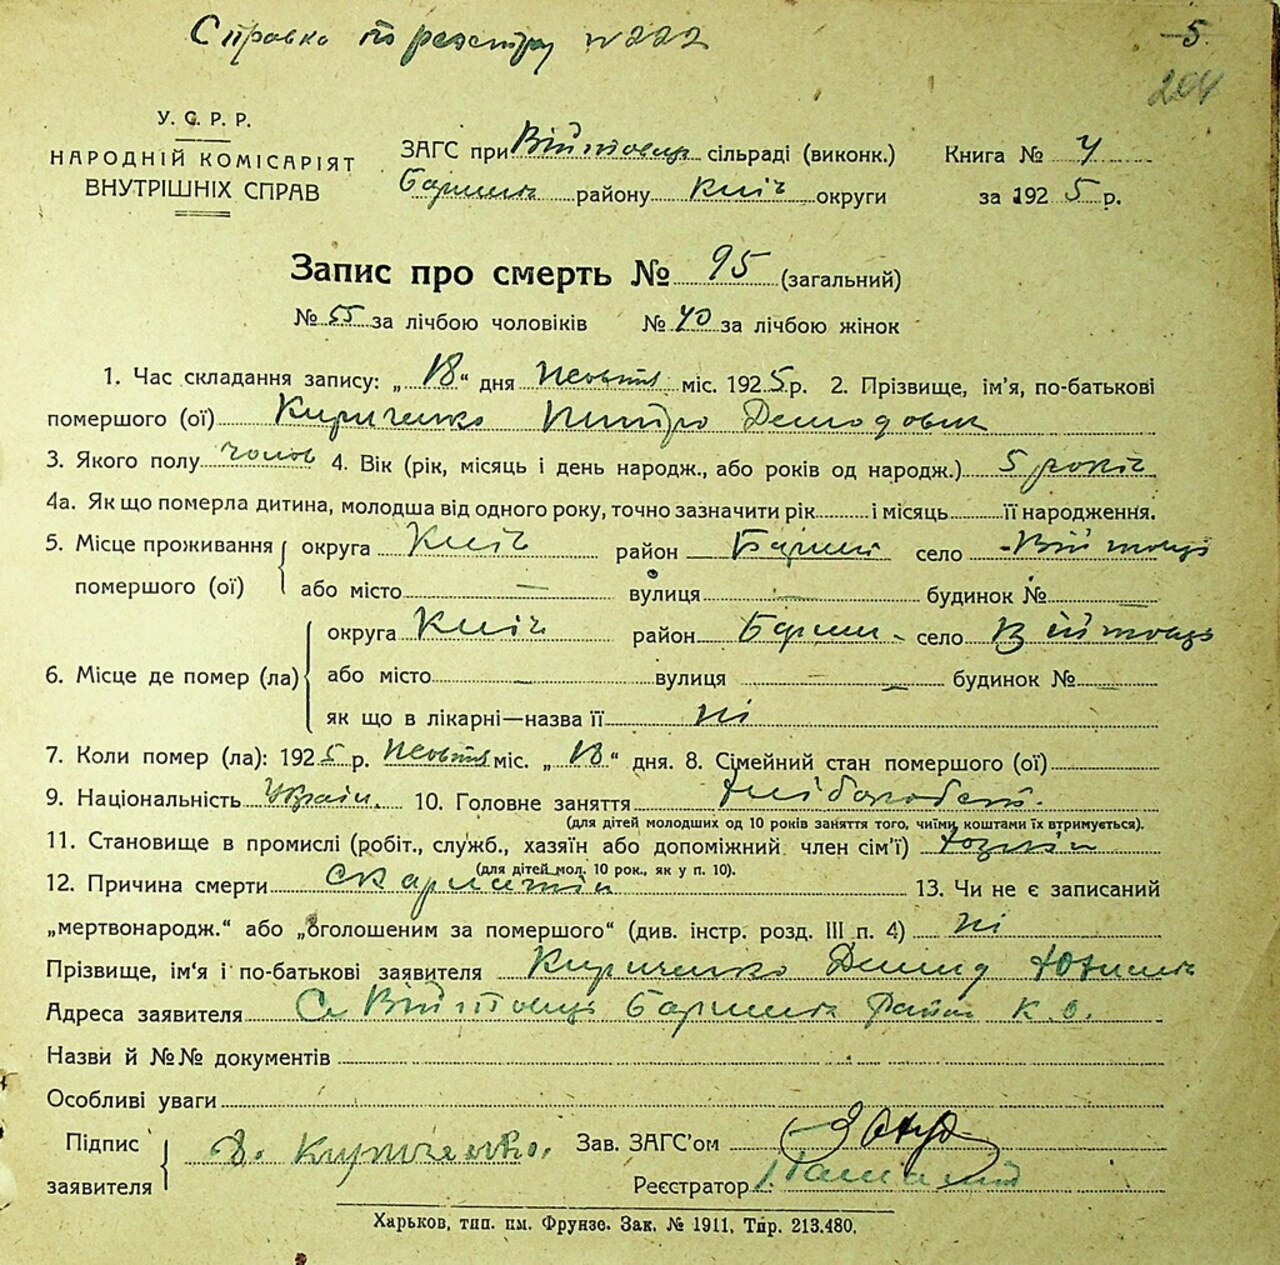 Справка по реєстру № 222
5
204
У. С. Р. Р.
НАРОДНІЙ КОМІСАРІЯТ
ВНУТРІШНІХ СПРАВ
ЗАГС при Війтовец. сільраді (виконк.)
району Київ округи
Книга № 4
за 1925 р.
Запис про смерть № 95 (загальний)
№ 55 за лічбою чоловіків № 40 за лічбою жінок
1. Час складання запису: „18“ дня Жовтня міс. 1925 р. 2. Прізвище, ім’я, по-батькові
помершого (ої) Кириченко Петро Демидович
3. Якого полу чолов 4. Вік (рік, місяць і день народж., або років од народж.) 5 років
4а. Як що померла дитина, молодша від одного року, точно зазначити рік і місяць її народження.
5. Місце проживання помершого (ої) округа Київ район Баришів село Війтовці
або місто — вулиця — будинок № —
6. Місце де помер (ла) округа Київ район Бориш село Війтовці
або місто — вулиця — будинок № —
як що в лікарні—назва її ні
7. Коли помер (ла): 1925 р. Жовтня міс. „18“ дня. 8. Сімейний стан помершого (ої)
9. Національність Україн. 10. Головне заняття хліборобст.
(для дітей молодших од 10 років заняття того, чиїми коштами їх втримується).
11. Становище в промислі (робіт., служб., хазяїн або допоміжний член сім’ї) хозяїн
(для дітей мол. 10 рок., як у п. 10).
12. Причина смерти Скарлатін 13. Чи не є записаний
„мертвонародж.“ або „оголошеним за помершого“ (див. інстр. розд. III п. 4) ні
Прізвище, ім’я і по-батькові заявителя Кириченко Демид
Адреса заявителя С. Війтовці Баришів район К. О.
Назви й №№ документів
Особливі уваги
Підпис заявителя Д. Кириченко. Зав. ЗАГС’ом
Реєстратор
Харьков, тип. им. Фрунзе. Зак. № 1911. Тир. 213.480.